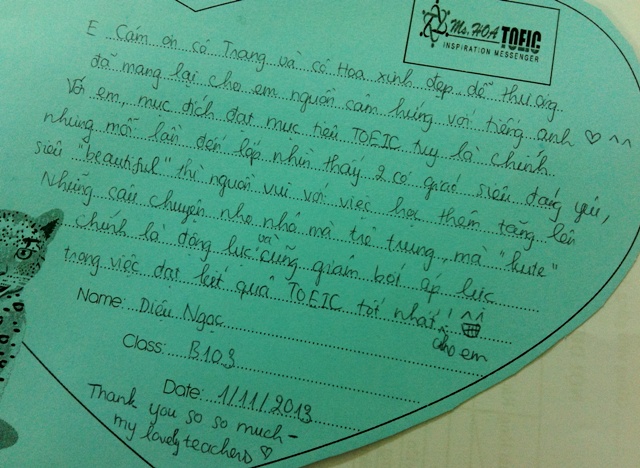 Ms. HOA TOEIC
INSPIRATION MESSENGER
E cám ơn cô Trang và cô Hoa xinh đẹp dễ thương
đã mang lại cho em nguồn cảm hứng với tiếng anh ♡ ^^
Với em, mục đích đạt mục tiêu TOEIC tuy là chính
nhưng mỗi lần đến lớp nhìn thấy 2 cô giáo siêu đáng yêu,
siêu "beautiful" thì nguồn vui với việc học thêm tăng lên
Những câu chuyện nho nhỏ mà trẻ trung, mà "kute"
chính là động lực và cũng giảm bớt áp lực
trong việc đạt kết quả TOEIC tốt nhất!
cho em
Name: Diệu Ngọc
Class: B103
Date: 1/11/2013
Thank you so so much -
my lovely teachers ♡